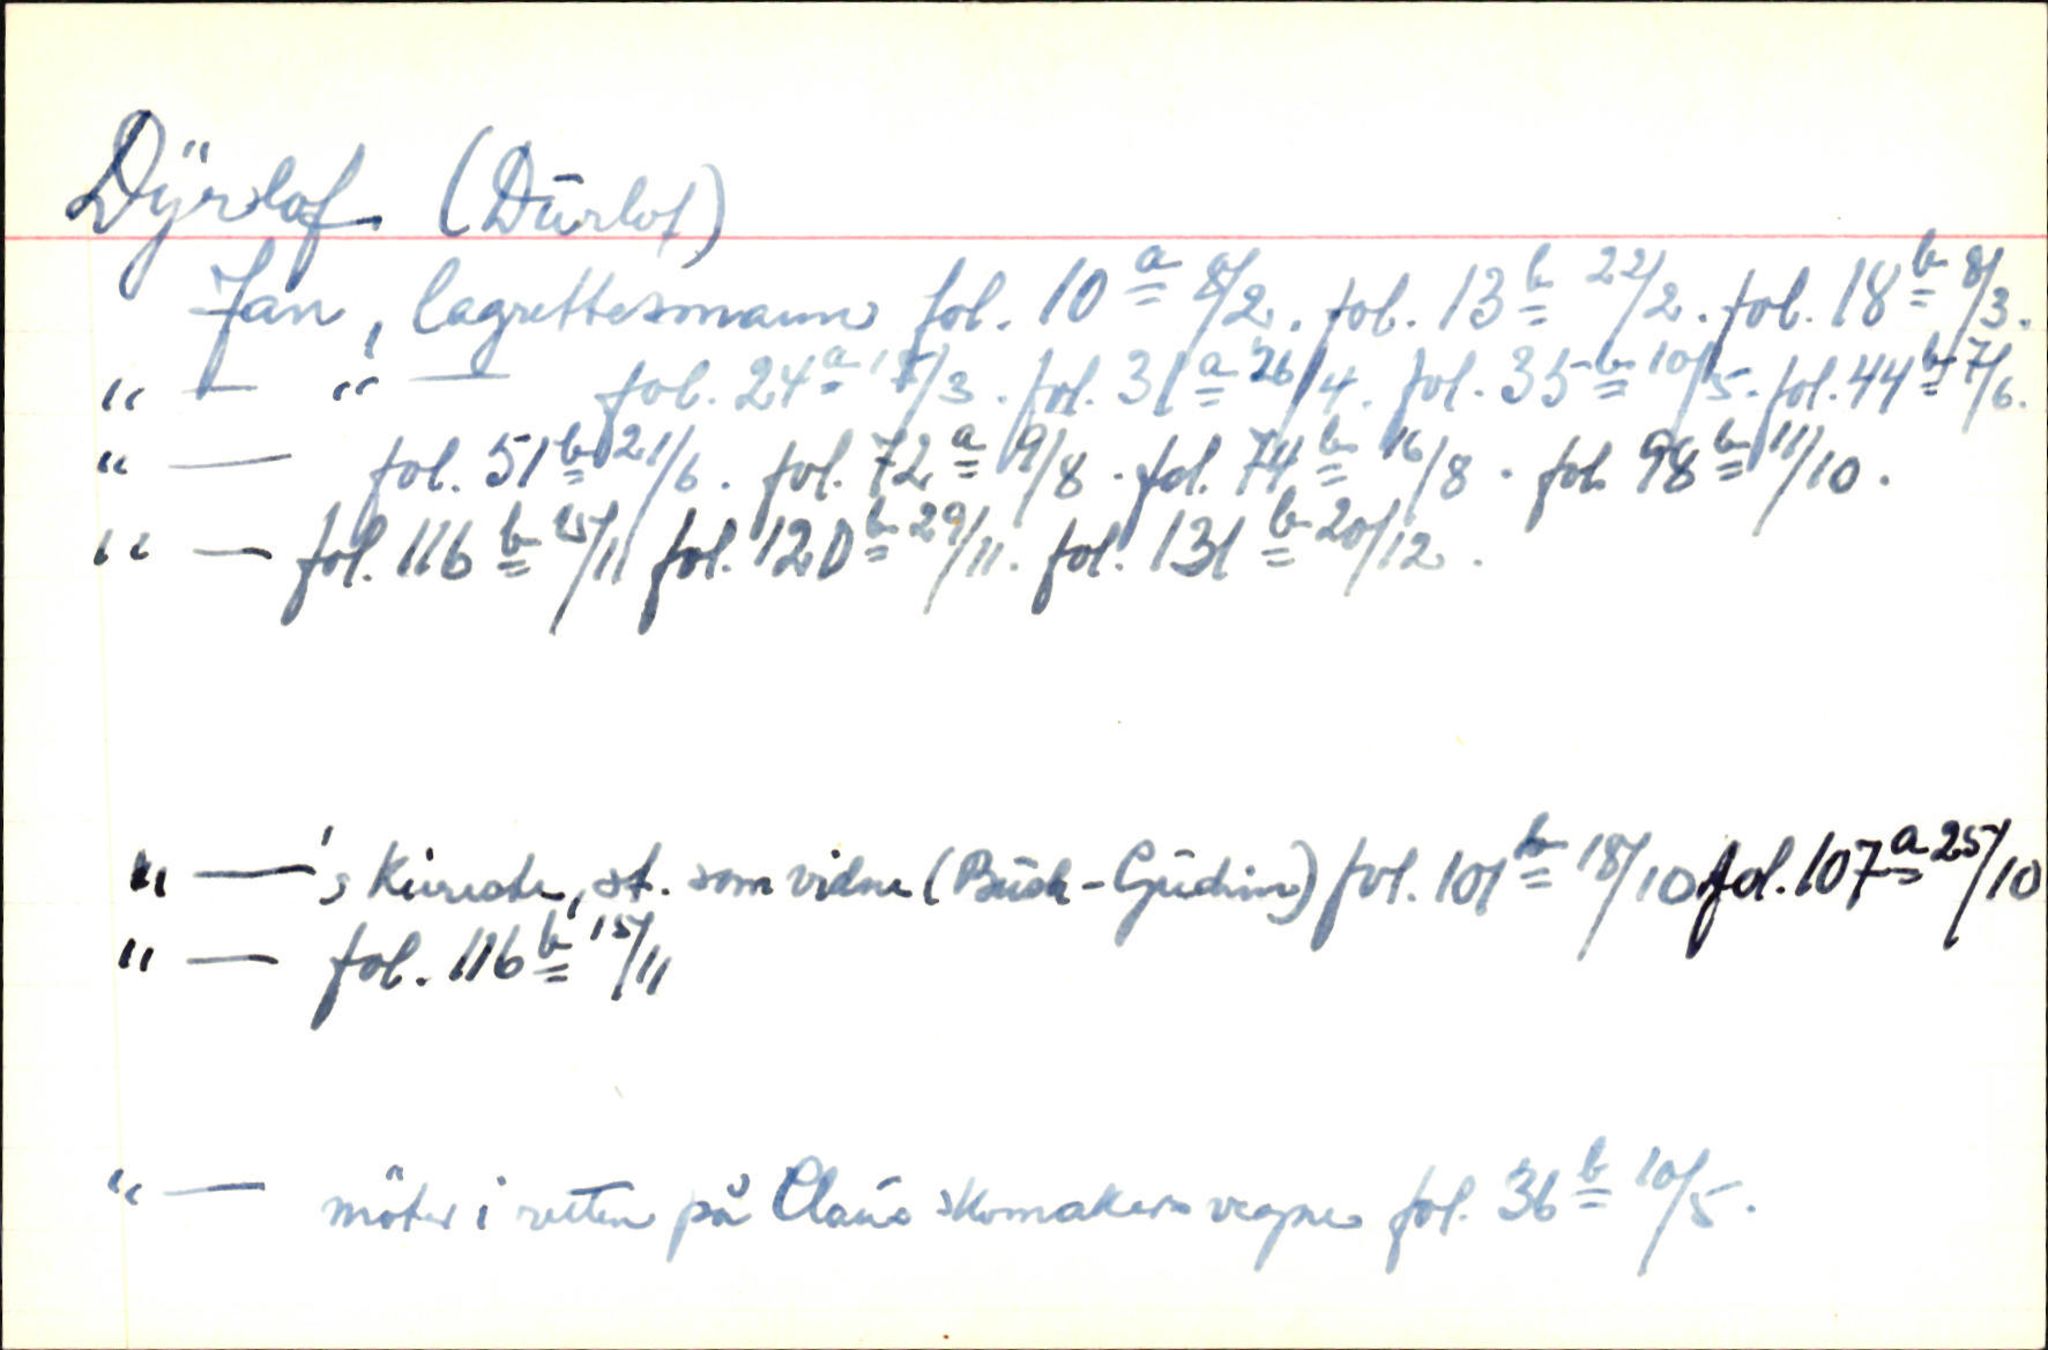 Dÿrlof (Dūrlof)
Jan, lagrettesmann fol. 10 a 8/2. fol. 13 b 22/2. fol. 18 b 8/3.
" — " — fol. 24 a 18/3. fol. 31 a 26/4. fol. 35 b 10/5. fol. 44 b 7/6.
" — fol. 51 b 21/6. fol. 72 a 9/8. fol. 74 b 16/8. fol. 98 b 11/10.
" — fol. 116 b 15/11 fol. 120 b 29/11. fol. 131 b 20/12.
" —'s Kvinde, st. som vidne (Būsk - Gūdim) fol. 101 b 18/10 fol. 107 a 25/10
" — fol. 116 b 15/11
" — möter i retten på Claūs skomakers vegne fol. 36 b 10/5.